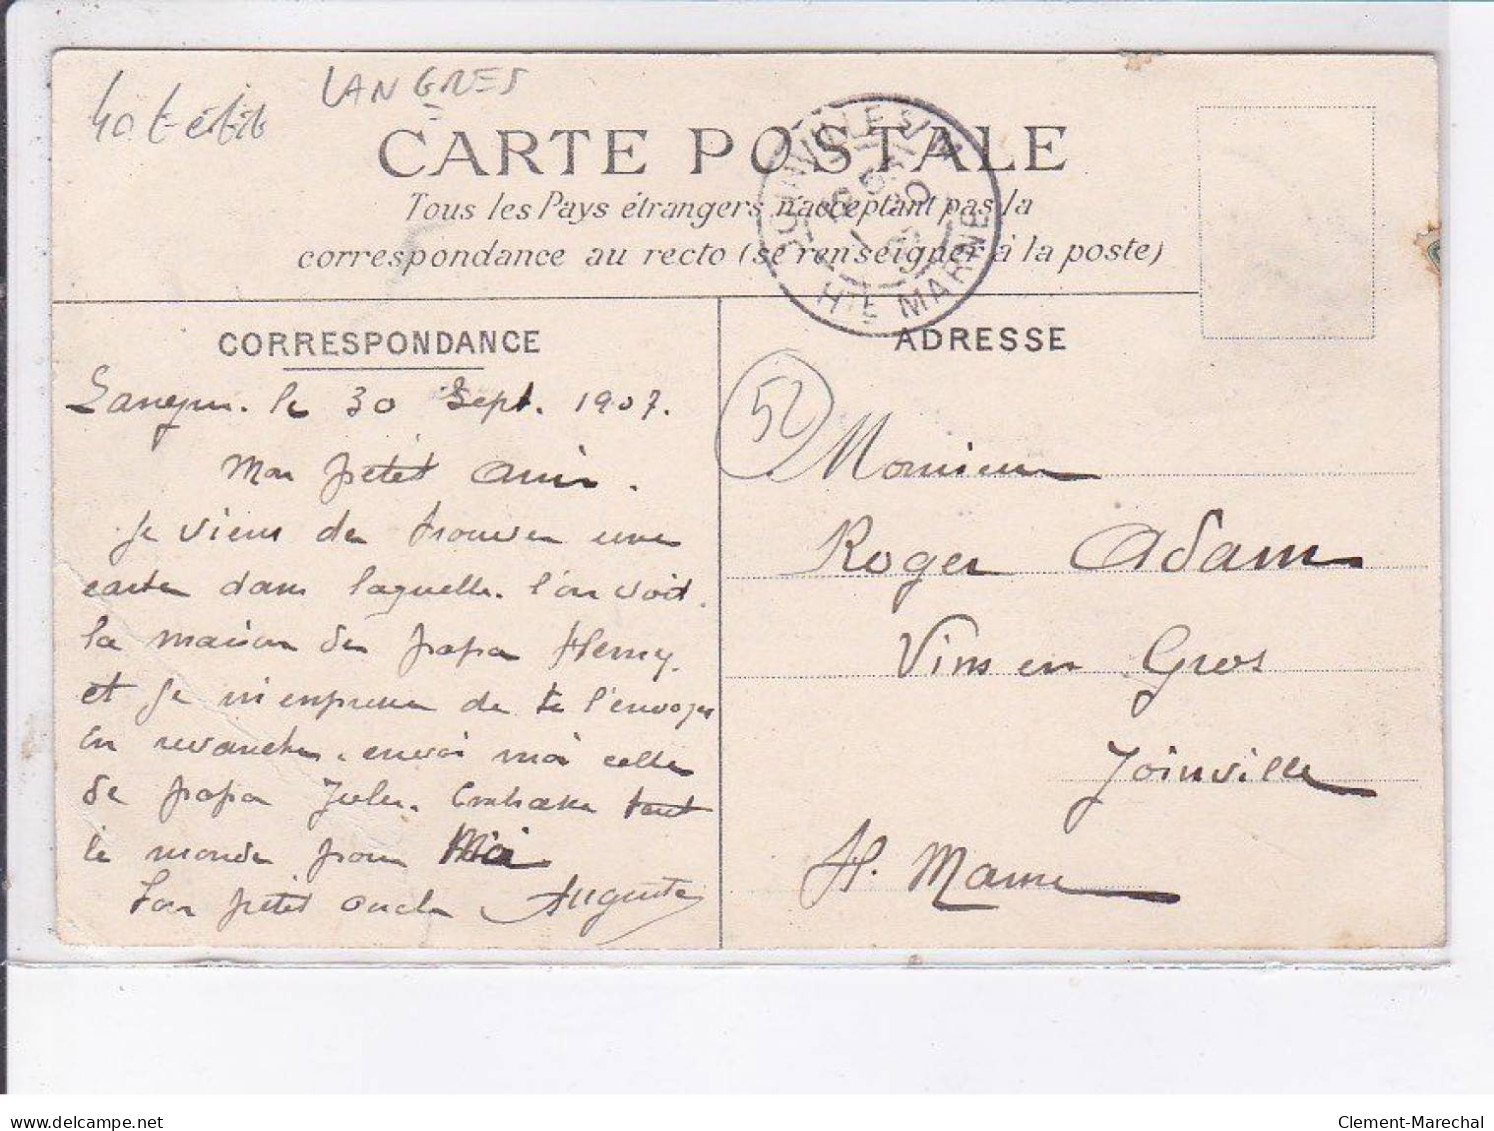 40 t-état
LANGRES
CARTE POSTALE
Tous les Pays étrangers n'acceptant pas la
correspondance au recto (se renseigner à la poste)
JOINVILLE S/M
Hte MARNE
CORRESPONDANCE
ADRESSE
Langres. le 30 Sept. 1907.
Mon petit ami.
Je viens de trouver une
carte dans laquelle l'on voit
la maison de papa Henry.
et je m'empresse de te l'envoyer
en revanche, envoi moi celle
de papa Jules. Embrasse tout
le monde pour Moi
Ton petit oncle Auguste
52
Monsieur
Roger Adam
Vins en Gros
Joinville
H. Marne
www.delcampe.net
Clement-Marechal